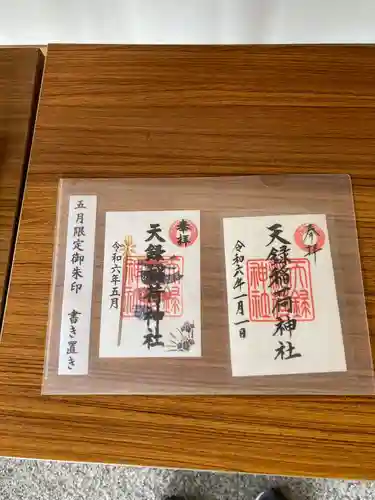 五月限定御朱印 書き置き
奉拝
天録稲荷神社
令和六年五月
奉拝
天録稲荷神社
令和六年一月一日